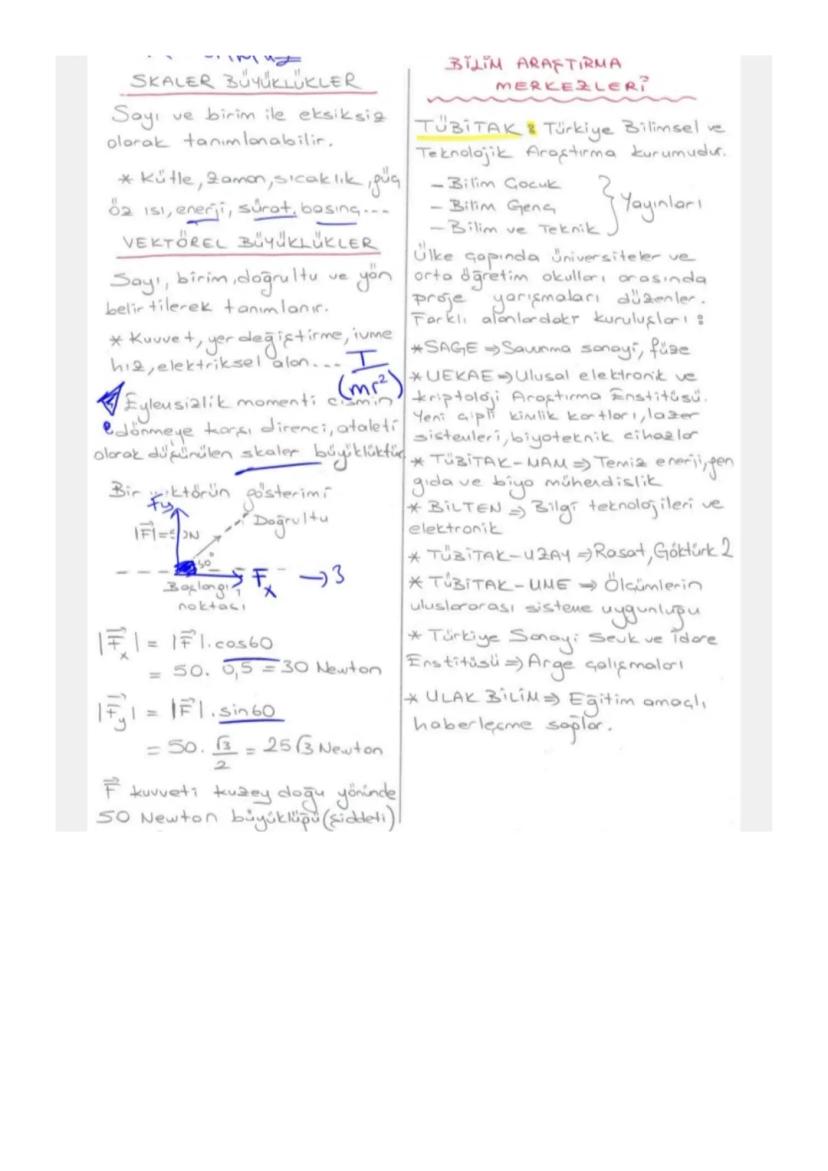 SKALER BÜYÜKLÜKLER
Sayı ve birim ile eksiksiz
olarak tanımlanabilir.
* Kütle, zaman, sıcaklık, güç
öz ısı, enerji, sürat, basınç...
VEKTÖREL BÜYÜKLÜKLER
Sayı, birim, doğrultu ve yön
belirtilerek tanımlanır.
* Kuvvet, yer değiştirme, ivme
hız, elektriksel alan...
I
(mr²)
Eylemsizlik momenti cismin
dönmeye karşı direnci, ataleti
olarak düşünülen skaler büyüklüktür
Bir vektörün gösterimi
Fy
Doğrultu
|F|=50N
60°
Fx → 3
Başlangıç
noktası
|Fx| = |F|.cos60
= 50. 0,5 = 30 Newton
|Fy| = |F|.sin60
= 50. √3/2 = 25√3 Newton
F kuvveti kuzey doğu yönünde
50 Newton büyüklüğü (şiddeti)
BİLİM ARAŞTIRMA
MERKEZLERİ
TÜBİTAK : Türkiye Bilimsel ve
Teknolojik Araştırma kurumudur.
- Bilim Çocuk
- Bilim Genç } Yayınları
- Bilim ve Teknik
Ülke çapında üniversiteler ve
orta öğretim okulları arasında
proje yarışmaları düzenler.
Farklı alanlardaki kuruluşları :
* SAGE ⇒ Savunma sanayi, füze
* UEKAE ⇒ Ulusal elektronik ve
kriptoloji Araştırma Enstitüsü.
Yeni çipli kimlik kartları, lazer
sistemleri, biyoteknik cihazlar
* TÜBİTAK-MAM ⇒ Temiz enerji, gen
gıda ve biyo mühendislik
* BİLTEN ⇒ Bilgi teknolojileri ve
elektronik
* TÜBİTAK-UZAY ⇒ Rasat, Göktürk 2
* TÜBİTAK-UME ⇒ Ölçümlerin
uluslararası sisteme uygunluğu
* Türkiye Sanayi Sevk ve İdare
Enstitüsü ⇒ Arge çalışmaları
* ULAK BİLİM ⇒ Eğitim amaçlı
haberleşme sağlar.